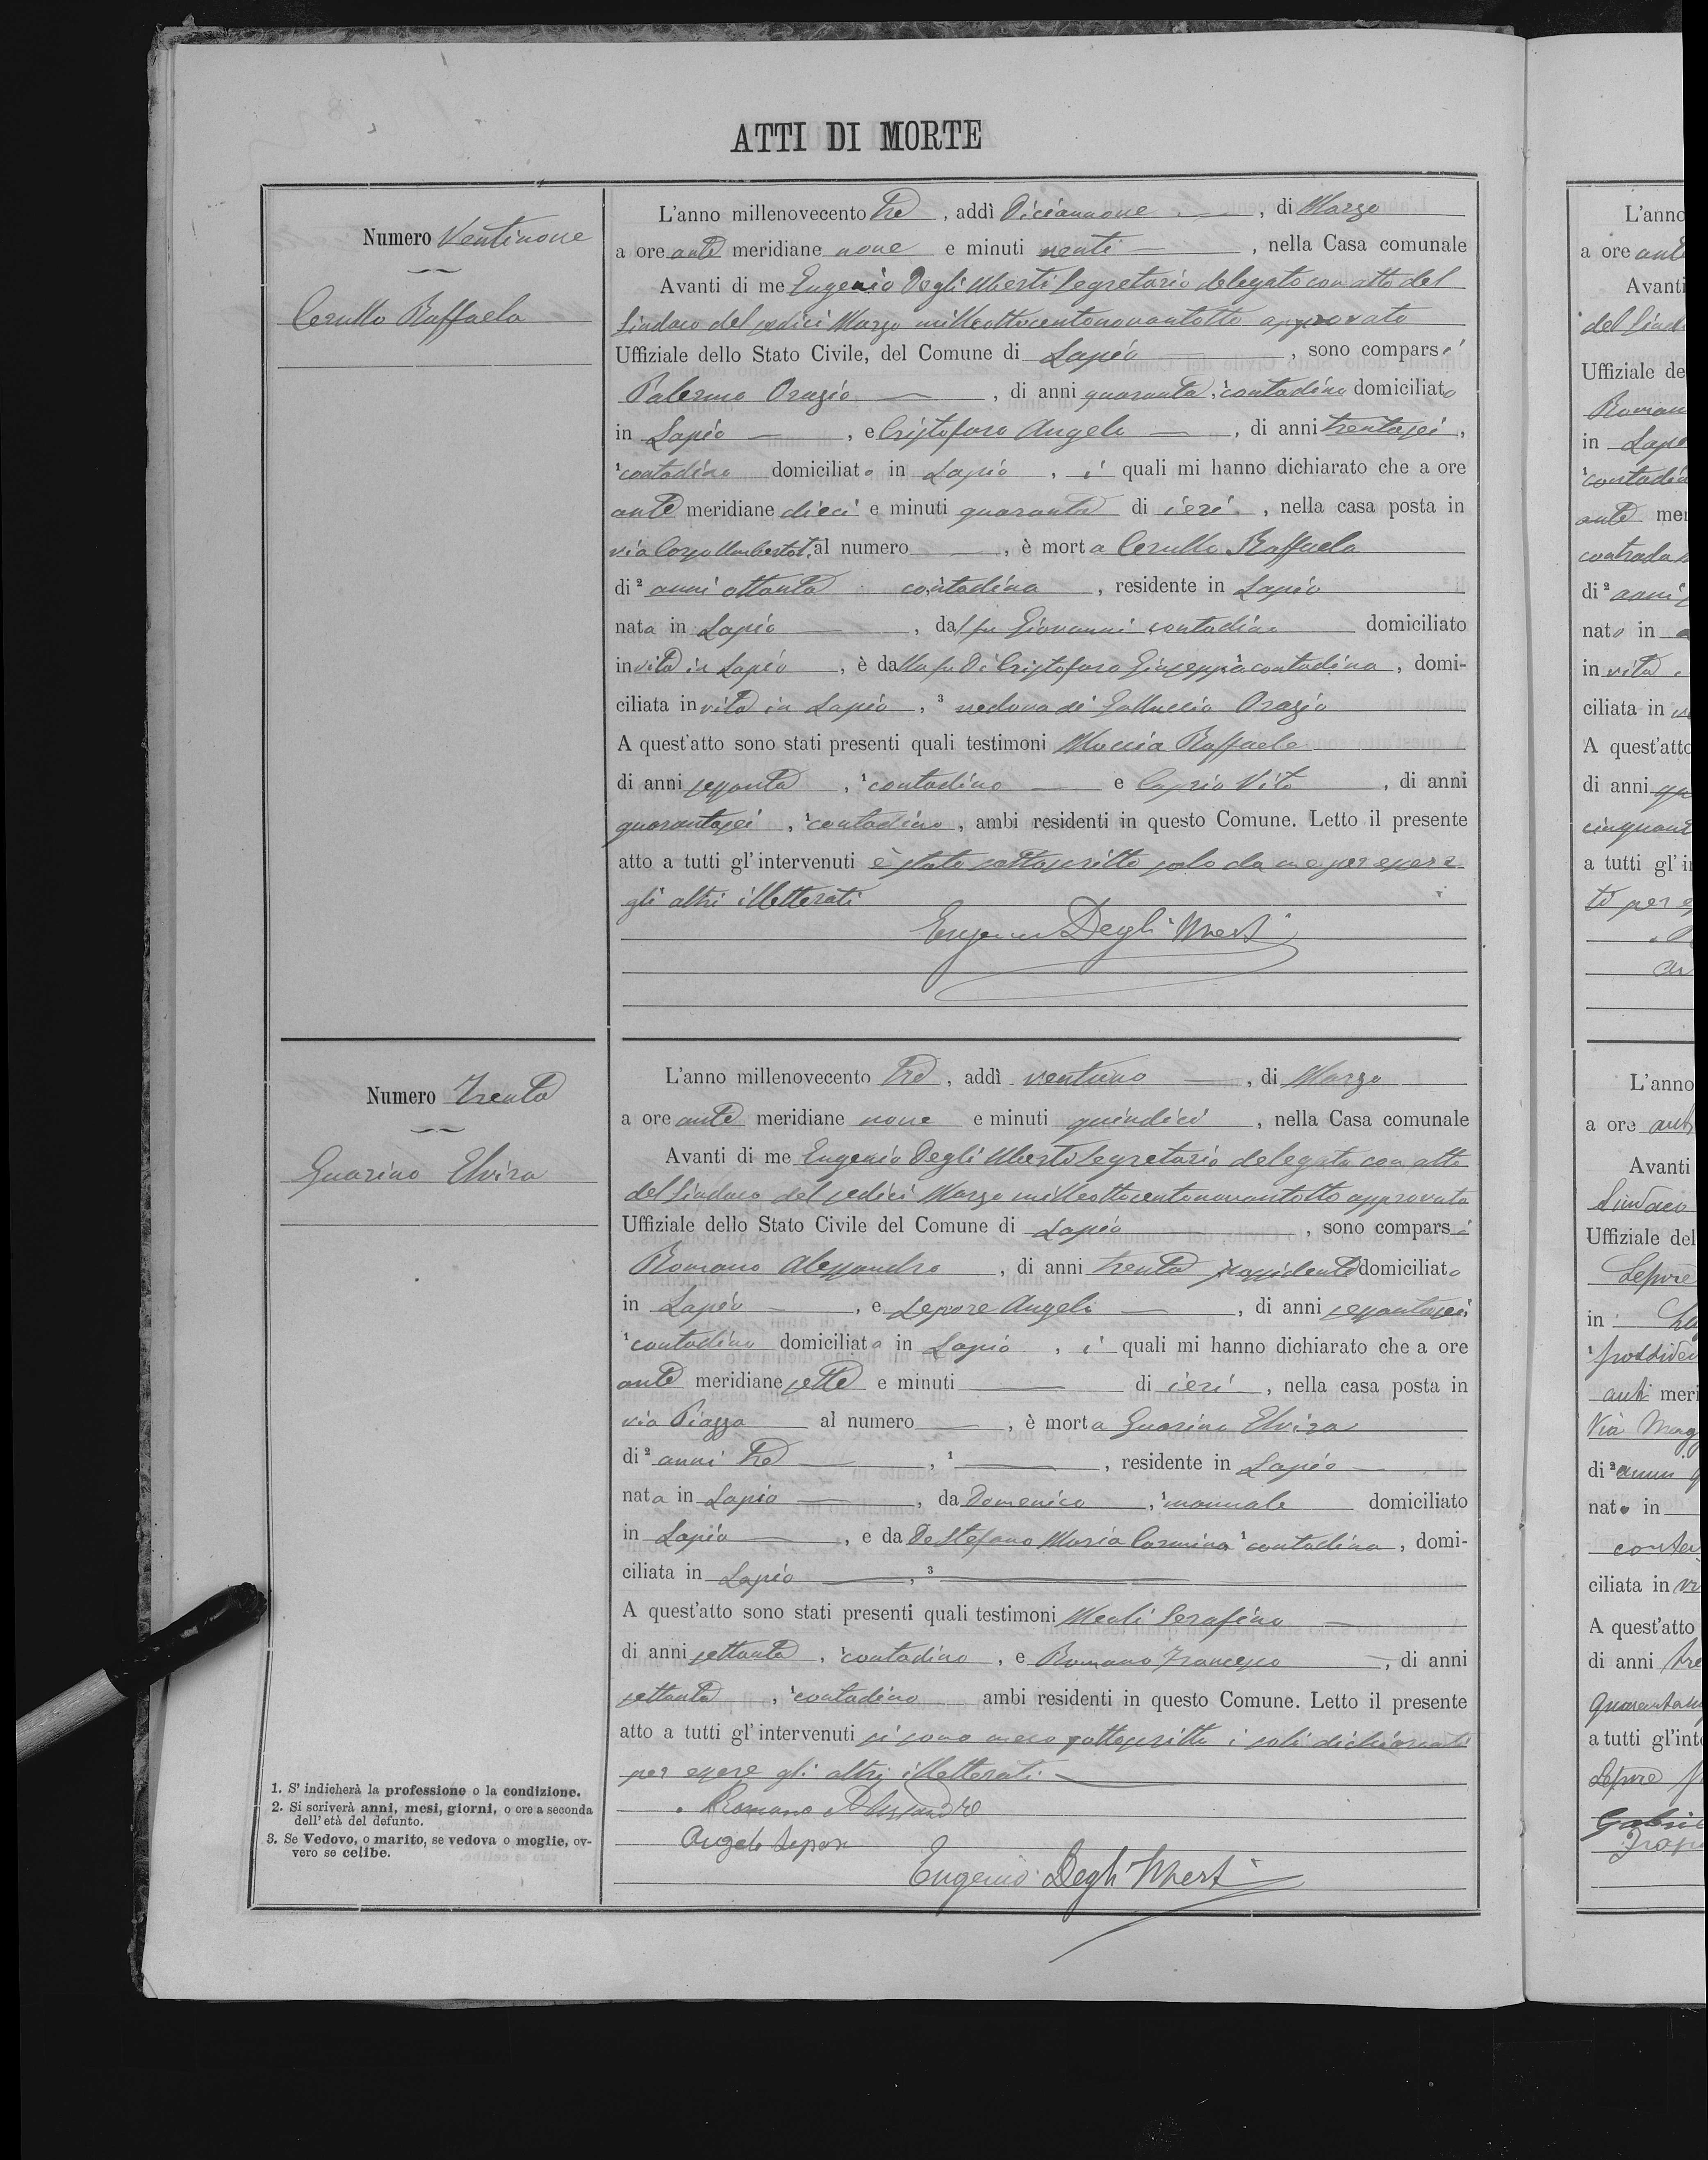 ATTI DI MORTE
Numero Ventinove
Cerullo Raffaela
L'anno millenovecento tre, addì Diciannove, di Marzo
a ore ante meridiane nove e minuti venti, nella Casa comunale
Avanti di me Eugenio Degli Uberti Segretario delegato con atto del
Sindaco del sedici Marzo milleottocentonovantotto approvato
Uffiziale dello Stato Civile, del Comune di Lapio, sono comparsi
Palermo Orazio, di anni quaranta, ¹contadino domiciliato
in Lapio, e Cristofaro Angelo, di anni trentasei,
¹contadino domiciliato in Lapio, i quali mi hanno dichiarato che a ore
ante meridiane dieci e minuti quaranta di ieri, nella casa posta in
via Corso Umberto I. al numero, è morta Cerullo Raffaela
di² anni ottanta contadina, residente in Lapio
nata in Lapio, dal fu Giovanni contadino domiciliato
in vita in Lapio, è dalla fu Di Cristofaro Giuseppa contadina, domi-
ciliata in vita in Lapio, ³ vedova di Galluccio Orazio
A quest'atto sono stati presenti quali testimoni Moccia Raffaele
di anni sessanta, ¹contadino e Caprio Vito, di anni
quarantasei, ¹contadino, ambi residenti in questo Comune. Letto il presente
atto a tutti gl'intervenuti è stato sottoscritto solo da me per essere
gli altri illetterati
Eugenio Degli Uberti
Numero Trenta
Guarino Elvira
L'anno millenovecento tre, addì ventuno, di Marzo
a ore ante meridiane nove e minuti quindici, nella Casa comunale
Avanti di me Eugenio Degli Uberti Segretario delegato con atto
del Sindaco del sedici Marzo milleottocentonovantotto approvato
Uffiziale dello Stato Civile del Comune di Lapio, sono comparsi
Romano Alessandro, di anni trenta possidente domiciliato
in Lapio, e Lepore Angelo, di anni sessantasei
¹contadino domiciliato in Lapio, i quali mi hanno dichiarato che a ore
ante meridiane sette e minuti di ieri, nella casa posta in
via Piazza al numero, è morta Guarino Elvira
di² anni tre, ¹, residente in Lapio
nata in Lapio, da Domenico, ¹manuale domiciliato
in Lapio, e da De Stefano Maria Carmina ¹contadina, domi-
ciliata in Lapio, ³
A quest'atto sono stati presenti quali testimoni Meoli Serafino
di anni settanta, ¹contadino, e Romano Francesco, di anni
settanta, ¹contadino ambi residenti in questo Comune. Letto il presente
atto a tutti gl'intervenuti si sono meco sottoscritti i soli dichiaranti
per essere gli altri illetterati
Romano Alessandro
Angelo Lepore
Eugenio Degli Uberti
1. S'indicherà la professione o la condizione.
2. Si scriverà anni, mesi, giorni, o ore a seconda
dell'età del defunto.
3. Se Vedovo, o marito, se vedova o moglie, ov-
vero se celibe.
L'anno
a ore ante
Avanti
del Sind
Uffiziale de
Roman
in Lapi
¹contadin
ante mer
contrada
di² anni
nato in
in vita
ciliata in
A quest'atto
di anni
cinquant
a tutti gl'in
ti per
L'anno
a ore ant
Avanti
Sindaco
Uffiziale del
Lepore
in
¹possiden
anti meri
Via Mag
di² anni
nato in
conta
ciliata in
A quest'atto
di anni tre
Quarantan
a tutti gl'inte
Lepore
Gabrie